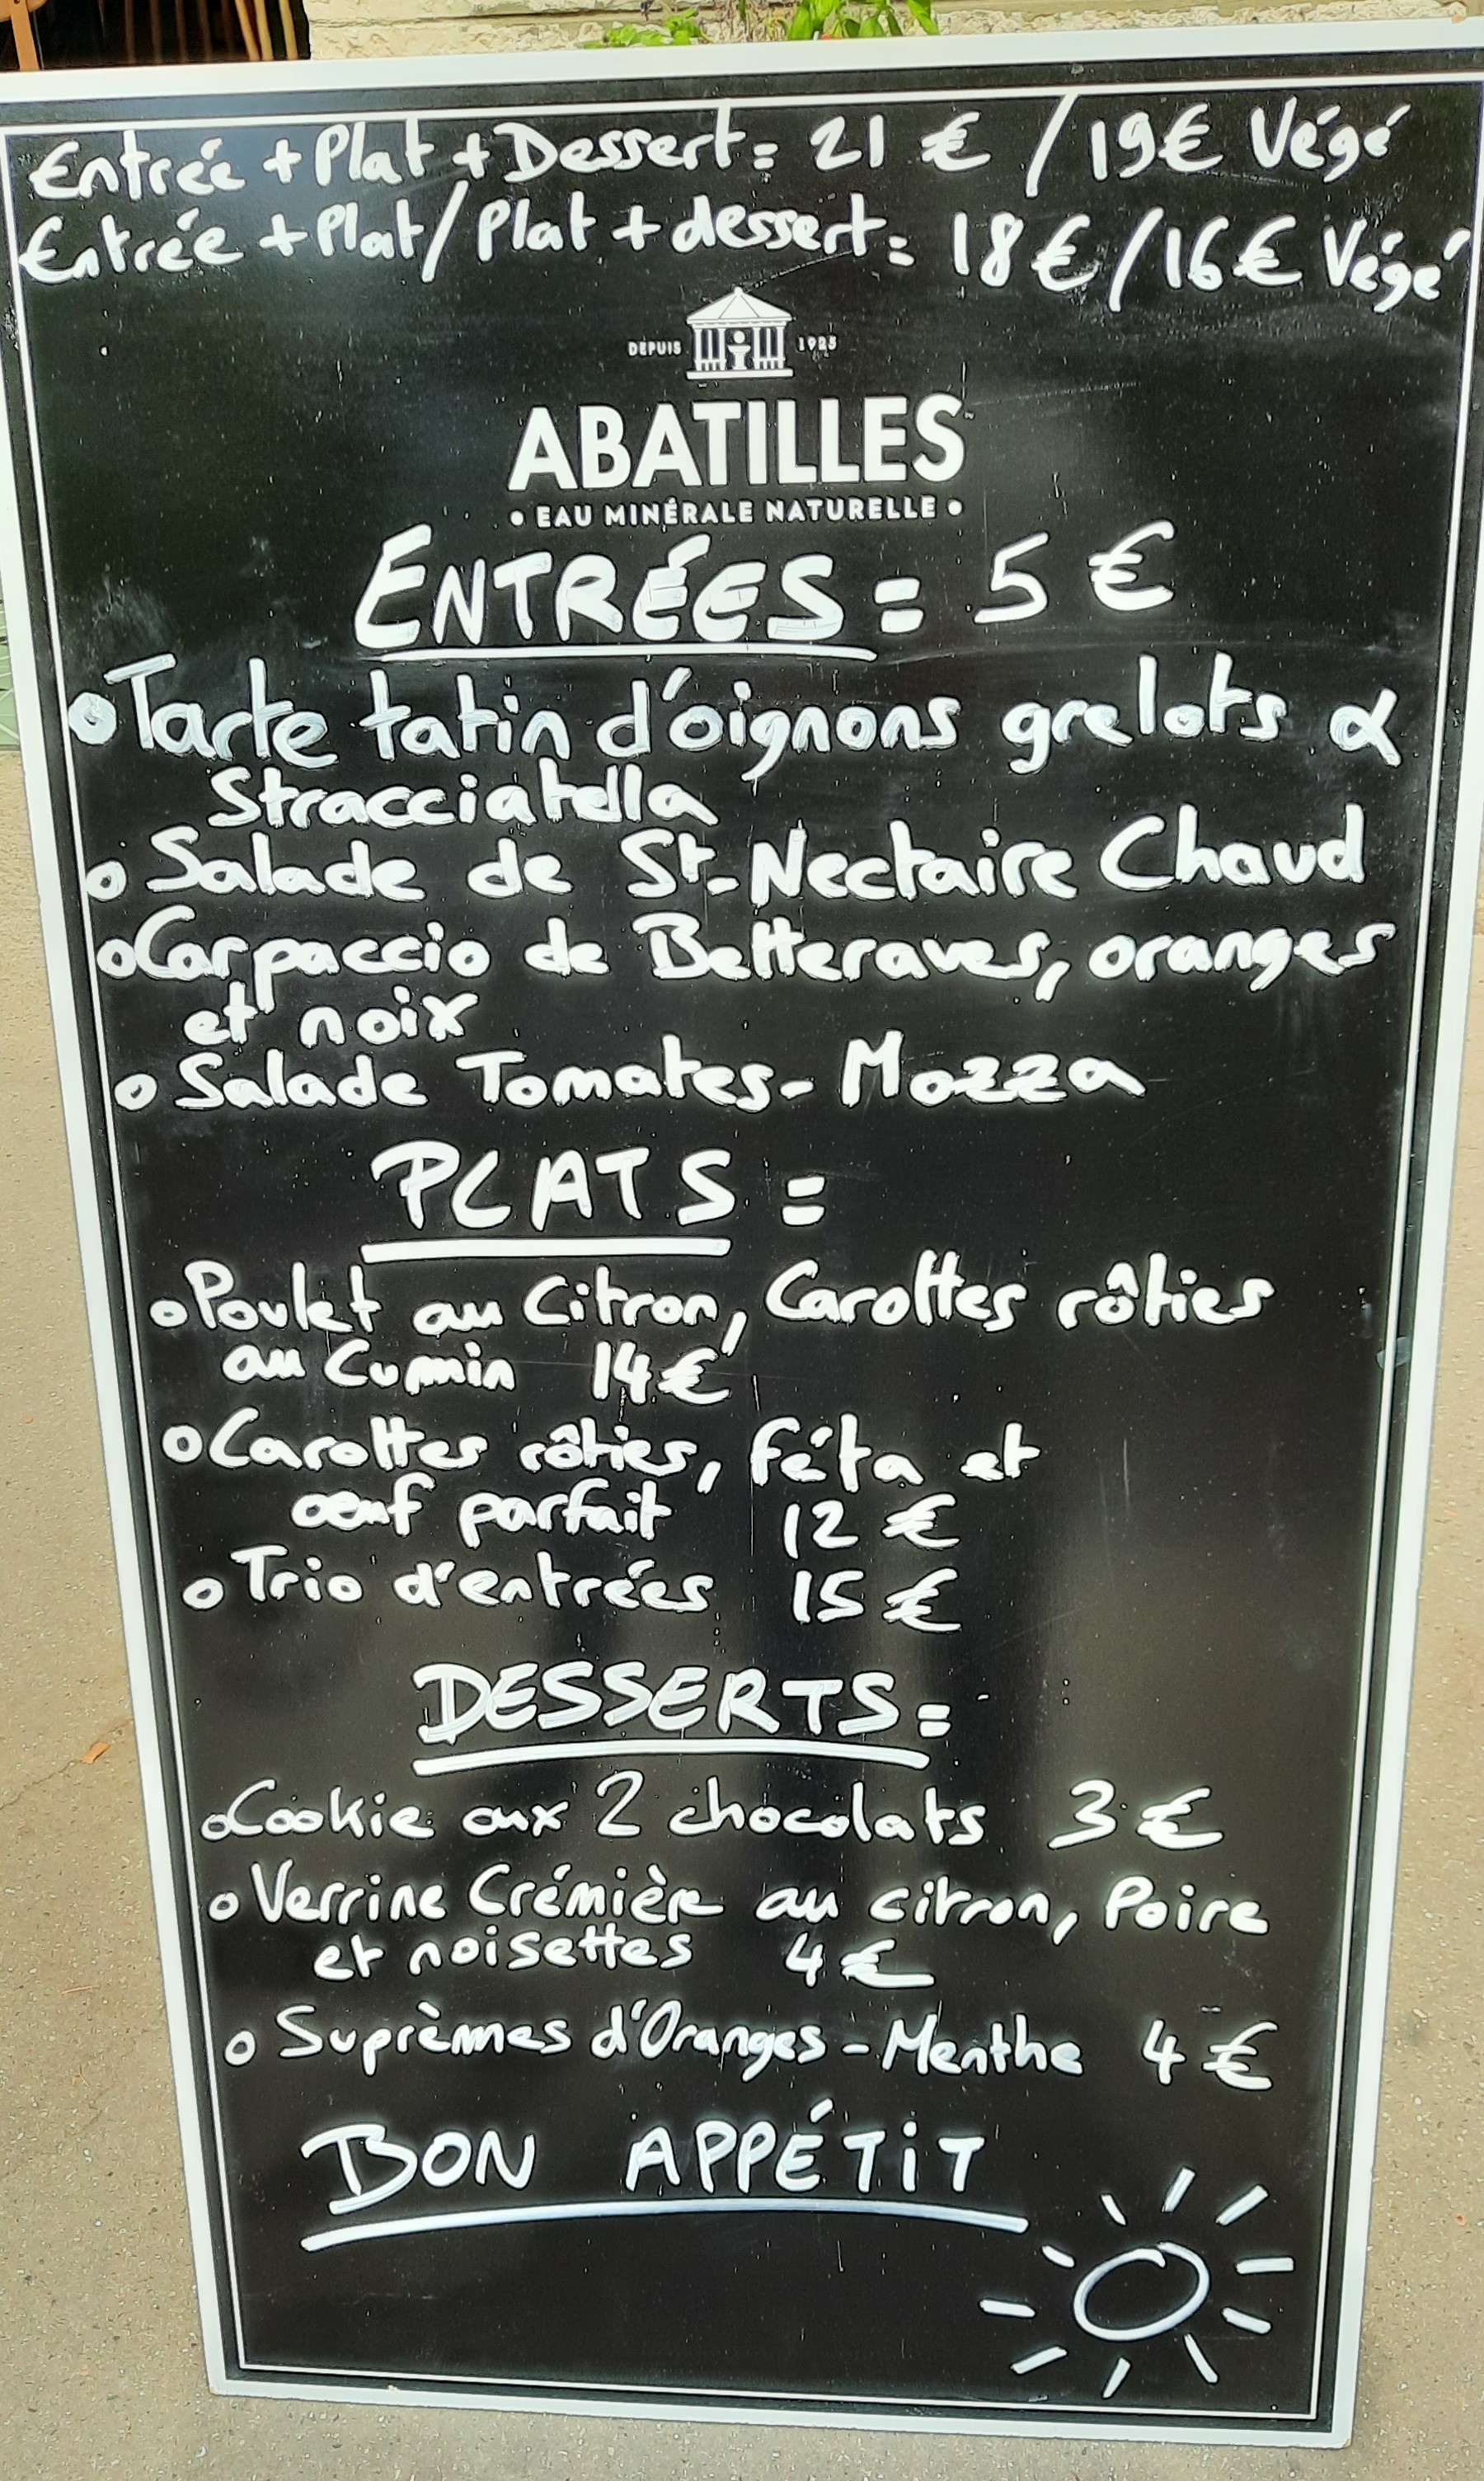 Entrée + Plat + Dessert = 21 € / 19€ Végé
Entrée + Plat / Plat + dessert = 18€ / 16€ Végé
DEPUIS 1925
ABATILLES
• EAU MINÉRALE NATURELLE •
ENTRÉES = 5 €
o Tarte tatin d'oignons grelots &
Stracciatella
o Salade de St-Nectaire Chaud
o Carpaccio de Betteraves, oranges
et noix
o Salade Tomates - Mozza
PLATS =
o Poulet au Citron, Carottes rôties
au Cumin 14€
o Carottes rôties, féta et
oeuf parfait 12 €
o Trio d'entrées 15 €
DESSERTS =
o Cookie aux 2 chocolats 3 €
o Verrine Crémière au citron, Poire
et noisettes 4€
o Suprêmes d'Oranges - Menthe 4 €
BON APPÉTIT